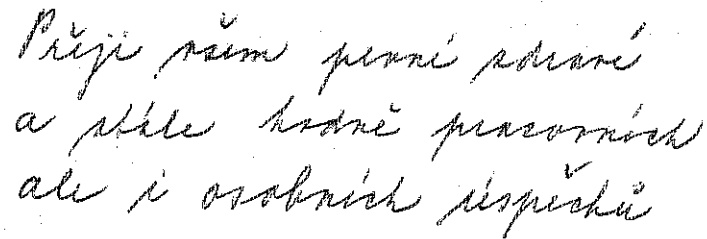 Přeji všem pevné zdraví
a stále hodně pracovních
ale i osobních úspěchů